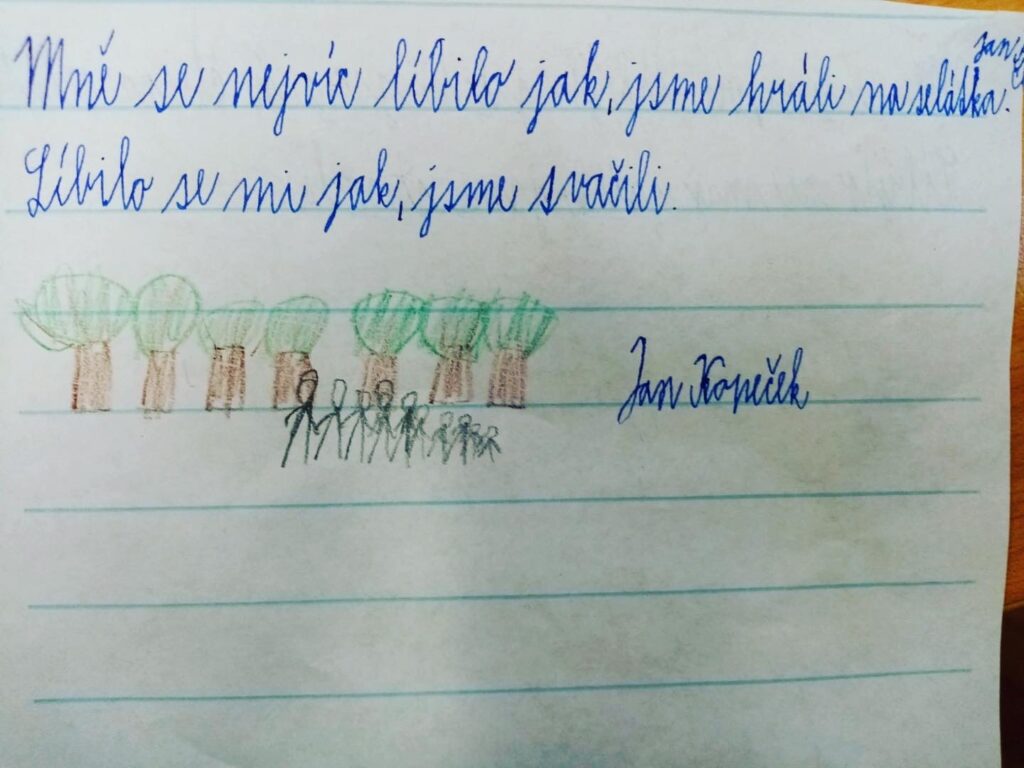 Mně se nejvíc líbilo jak, jsme hráli na selátka.
Líbilo se mi jak, jsme svačili.
Jan Kopeček